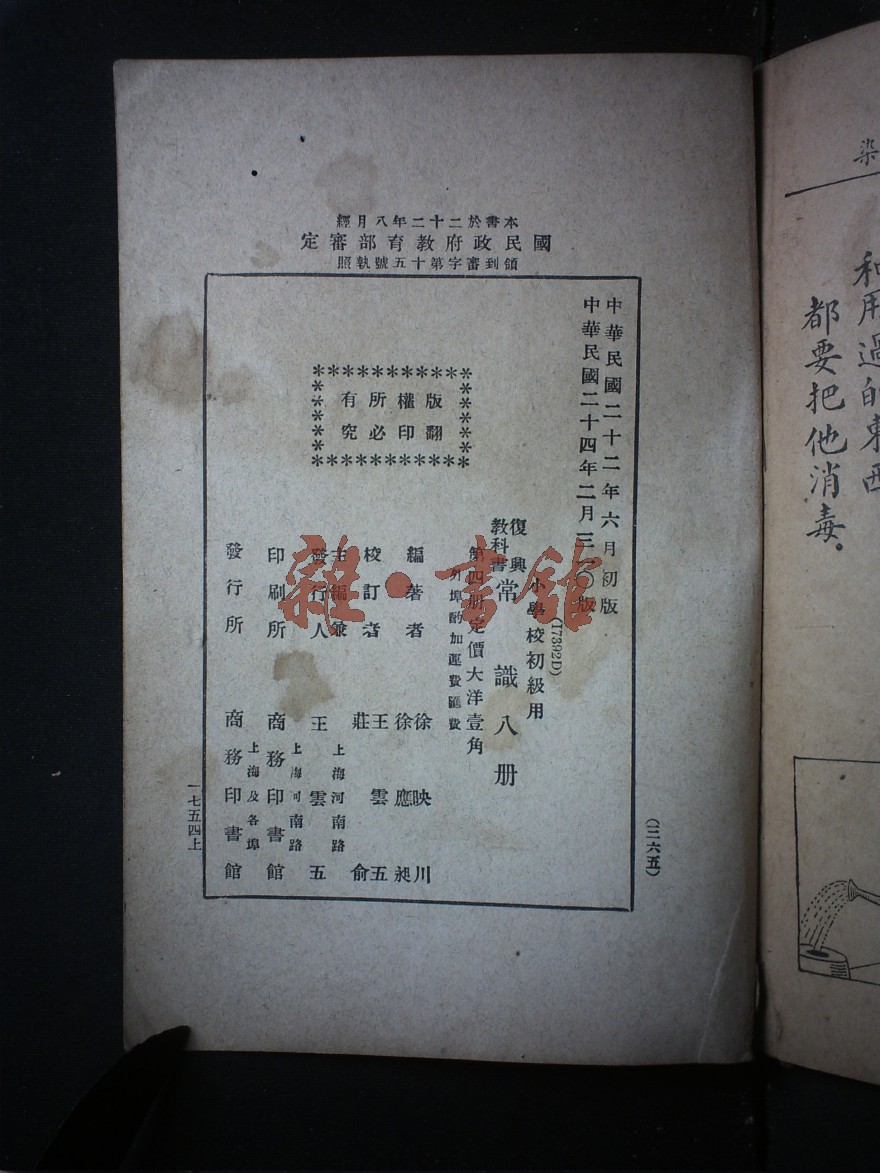 本書於二十二年八月經
國民政府教育部審定
領到審字第十五號執照
中華民國二十二年六月初版
中華民國二十四年二月三〇版
版權所有
翻印必究
(17392D)
小學校初級用
復興
教科書
常識八册
第四册定價大洋壹角
外埠酌加運費匯費
編著者
徐映川
徐應昶
校訂者
王雲五
莊俞
主編兼
發行人
上海河南路
王雲五
印刷所
上海河南路
商務印書館
發行所
上海及各埠
商務印書館
(二二六五)
一七五四上
雜·書館
染
利用過的東西
都要把他消毒。